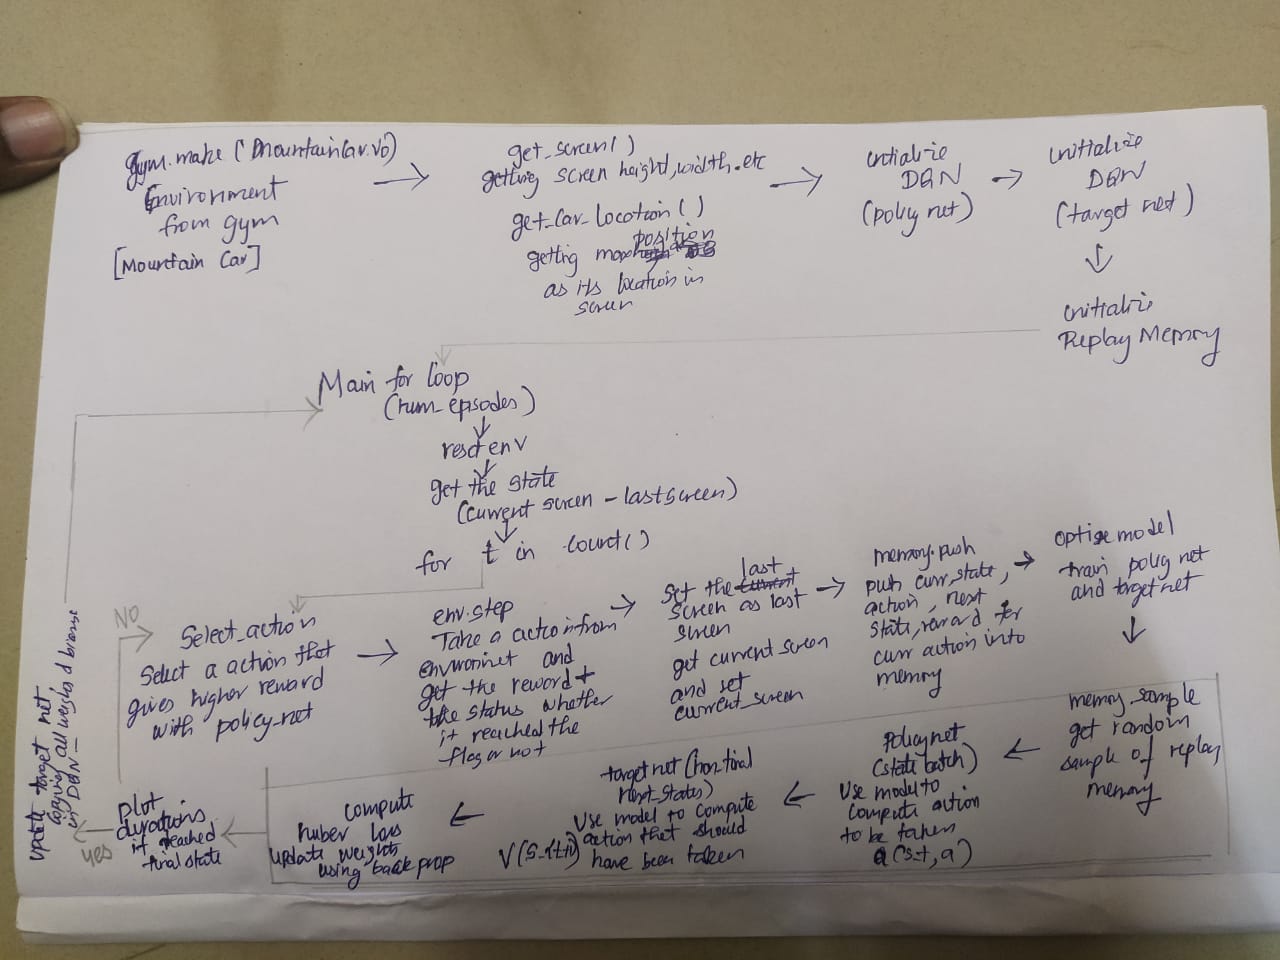 gym.make (MountainCar.v0)
Environment
from gym
[Mountain Car]
get_screen()
getting screen height, width. etc
get_car_location()
position
getting
as its location in
screen
intialize
DQN
(policy net)
initialize
DQN
(target net)
initialize
Replay Memory
Main for loop
(num_episodes)
reset env
get the state
(current screen - last screen)
for t in count()
NO
Select_action
Select a action that
gives higher reward
with policy_net
env.step
Take a action from
and
get the reward +
the status whether
it reached the
flag or not
last
set the current
screen as last
screen
get current screen
and set
current_screen
memory.push
push curr_state,
action, next
state, reward for
curr action into
memory
model
train policy net
and target net
memory_sample
get random
sample of replay
memory
Policy net
(state batch)
Use model to
compute action
to be taken
Q(s_t, a)
target net (non_final
next_states)
Use model to compute
action that should
V(s_{t+1}) have been taken
compute
huber loss
update weights
using back prop
plot
durations
if reached
final state
yes
update target net,
copying all weights & biases
in DQN